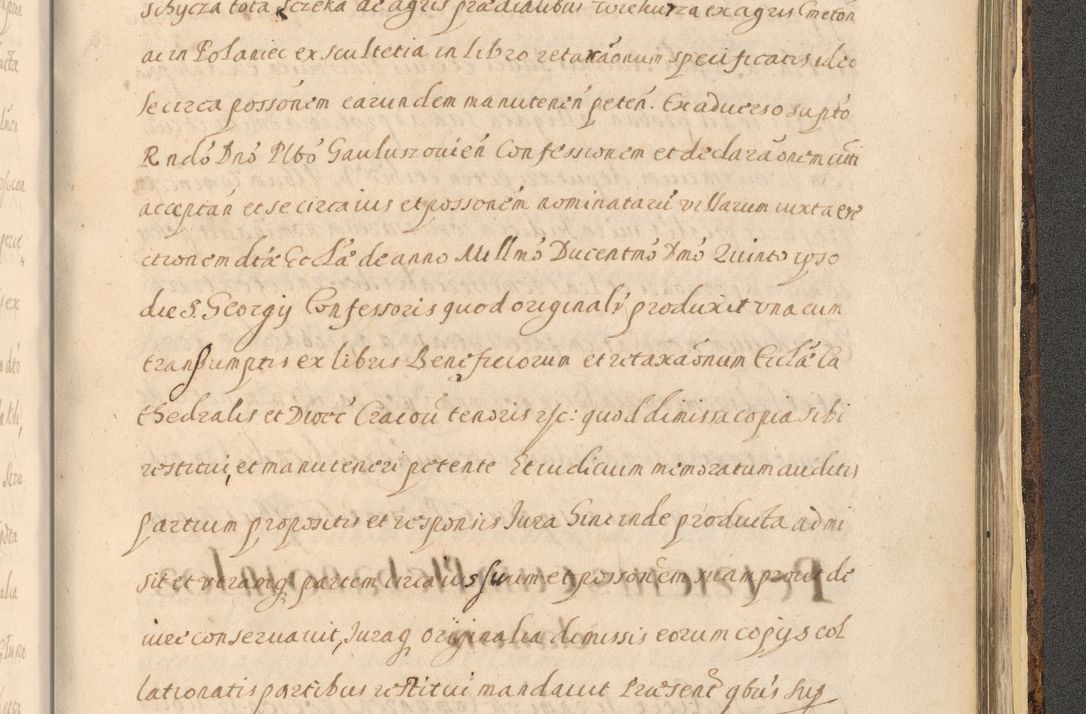 schycza tota Rzeka de agris prædialibus Wiekurza ex agris Cmeton
ac in Polaniec ex scultetia in libro retaxãonum specificatis ideo
se circa possónem earundem manutenén petén. Ex aduerso suptó
Rndó Dnó Plbó Gauluszouién Confessionem et declarãonem
acceptán et se circa ius et possoném nominatarũ villarum iuxta ere
ctionem dtæ Ecclæ de anno Millmó Ducentmó Dmó Quinto ipso
die S. Georgij Confessoris quod originalr produxit vna cum
transumptis ex libris Beneficiorum et retaxãonum Ecclæ Ca
thedralis et Diocć Cracoú tenoris rsc: quod dimissa copia sibi
restitui, et manuteneri petente Et iudicium memoratum auditis
partium propositis et responsis Jura hinc inde producta admi
sit et vtramq partem circa ius suum et possoném suam prout de
iure conseruauit, Juraq originalia dimissis eorum copijs col
lationatis partibus restitui mandauit Præsent̃ qbus sup